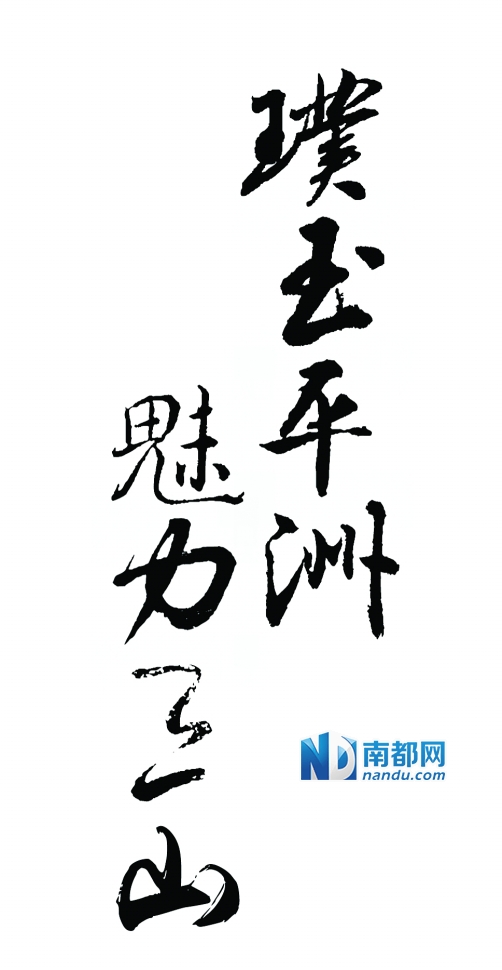 璞玉平洲
魅力三山
ND南都网
nandu.com